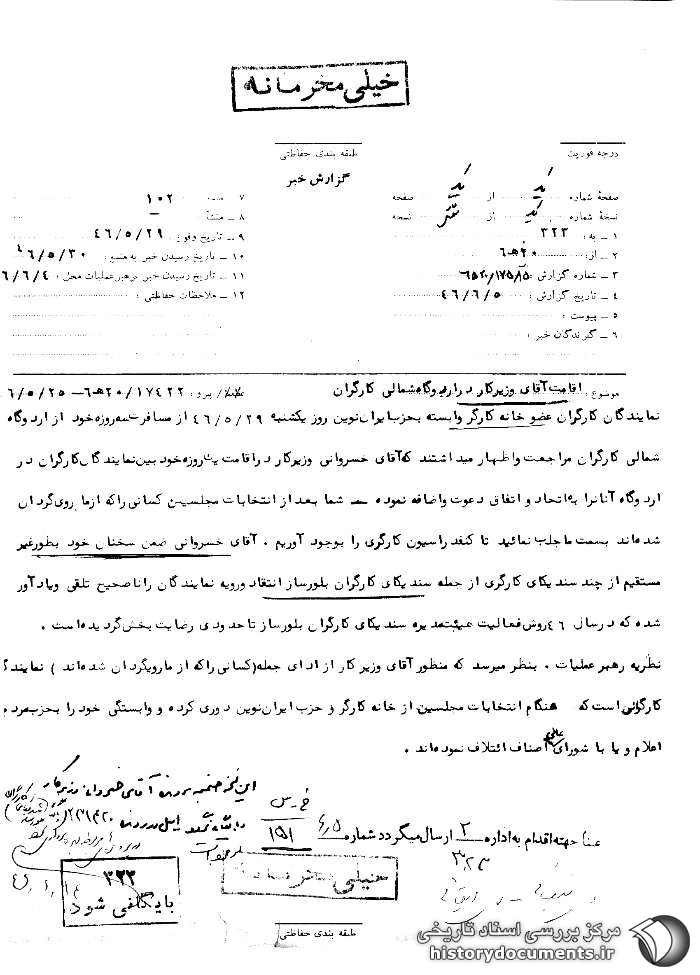 خیلی محرمانه
درجه فوریت
طبقه بندی حفاظتی
گزارش خبر
صفحهٔ شماره یک از یک صفحه
نسخهٔ شماره یک از نسخه
۱ ـ به : ۳۲۳
۲ ـ از : ۲۰ هـ ۶
۳ ـ شماره گزارش :
۴ ـ تاریخ گزارش : ۴۶/۶/۵
۵ ـ پیوست :
۶ ـ گیرندگان خبر :
۷ ۱۰۲
۸ ـ منشأ ـ
۹ ـ تاریخ وقوع : ۴۶/۵/۲۹
۱۰ ـ تاریخ رسیدن خبر به منبع : ۶/۵/۳۰
۱۱ ـ تاریخ رسیدن خبر برهبر عملیات محل : ۶/۶/۴
۱۲ ـ ملاحظات حفاظتی :
موضوع : اقامت آقای وزیر کار در اردوگاه شمالی کارگران
پیرو : ۲۰/۱۷۴۲۲هـ۶ ـ ۶/۵/۲۵
نمایندگان کارگران عضو خانه کارگر وابسته بحزب ایران نوین روز یکشنبه ۴۶/۵/۲۹ از مسافرت سه روزه خود از اردوگاه
شمالی کارگران مراجعت و اظهار میداشتند که آقای خسروانی وزیر کار در اقامت یک روزه خود بین نمایندگان کارگران در
اردوگاه آنانرا به اتحاد و اتفاق دعوت و اضافه نموده شما بعد از انتخابات مجلسین کسانی را که از ما روی گردان
شده اند بسمت ما جلب نمائید تا کنفدراسیون کارگری را بوجود آوریم . آقای خسروانی ضمن سخنان خود بطور غیر
مستقیم از چند سندیکای کارگری از جمله سندیکای کارگران بلورساز انتقاد و رویه نمایندگان را ناصحیح تلقی و یادآور
شده که در سال ۴۶ روش فعالیت هیئت مدیره سندیکای کارگران بلورساز تا حدودی رضایت بخش گردیده است .
نظریه رهبر عملیات . بنظر میرسد که منظور آقای وزیر کار از ادای جمله (کسانی را که از ما رویگردان شده اند )
کارگرانی است که هنگام انتخابات مجلسین از خانه کارگر و حزب ایران نوین دوری کرده و وابستگی خود را بحزب مردم
اعلام و یا با شورای عالی اصناف ائتلاف نموده اند .
این نسخه ضمیمه پرونده آقای خسروانی وزیر کار
عیناً جهته اقدام به اداره ۲ ارسال میگردد شماره
۱۵۱
۳۲۳
۳۲۳
بایگانی شود
خیلی محرمانه
طبقه بندی حفاظتی
مرکز بررسی اسناد تاریخی
historydocuments.ir